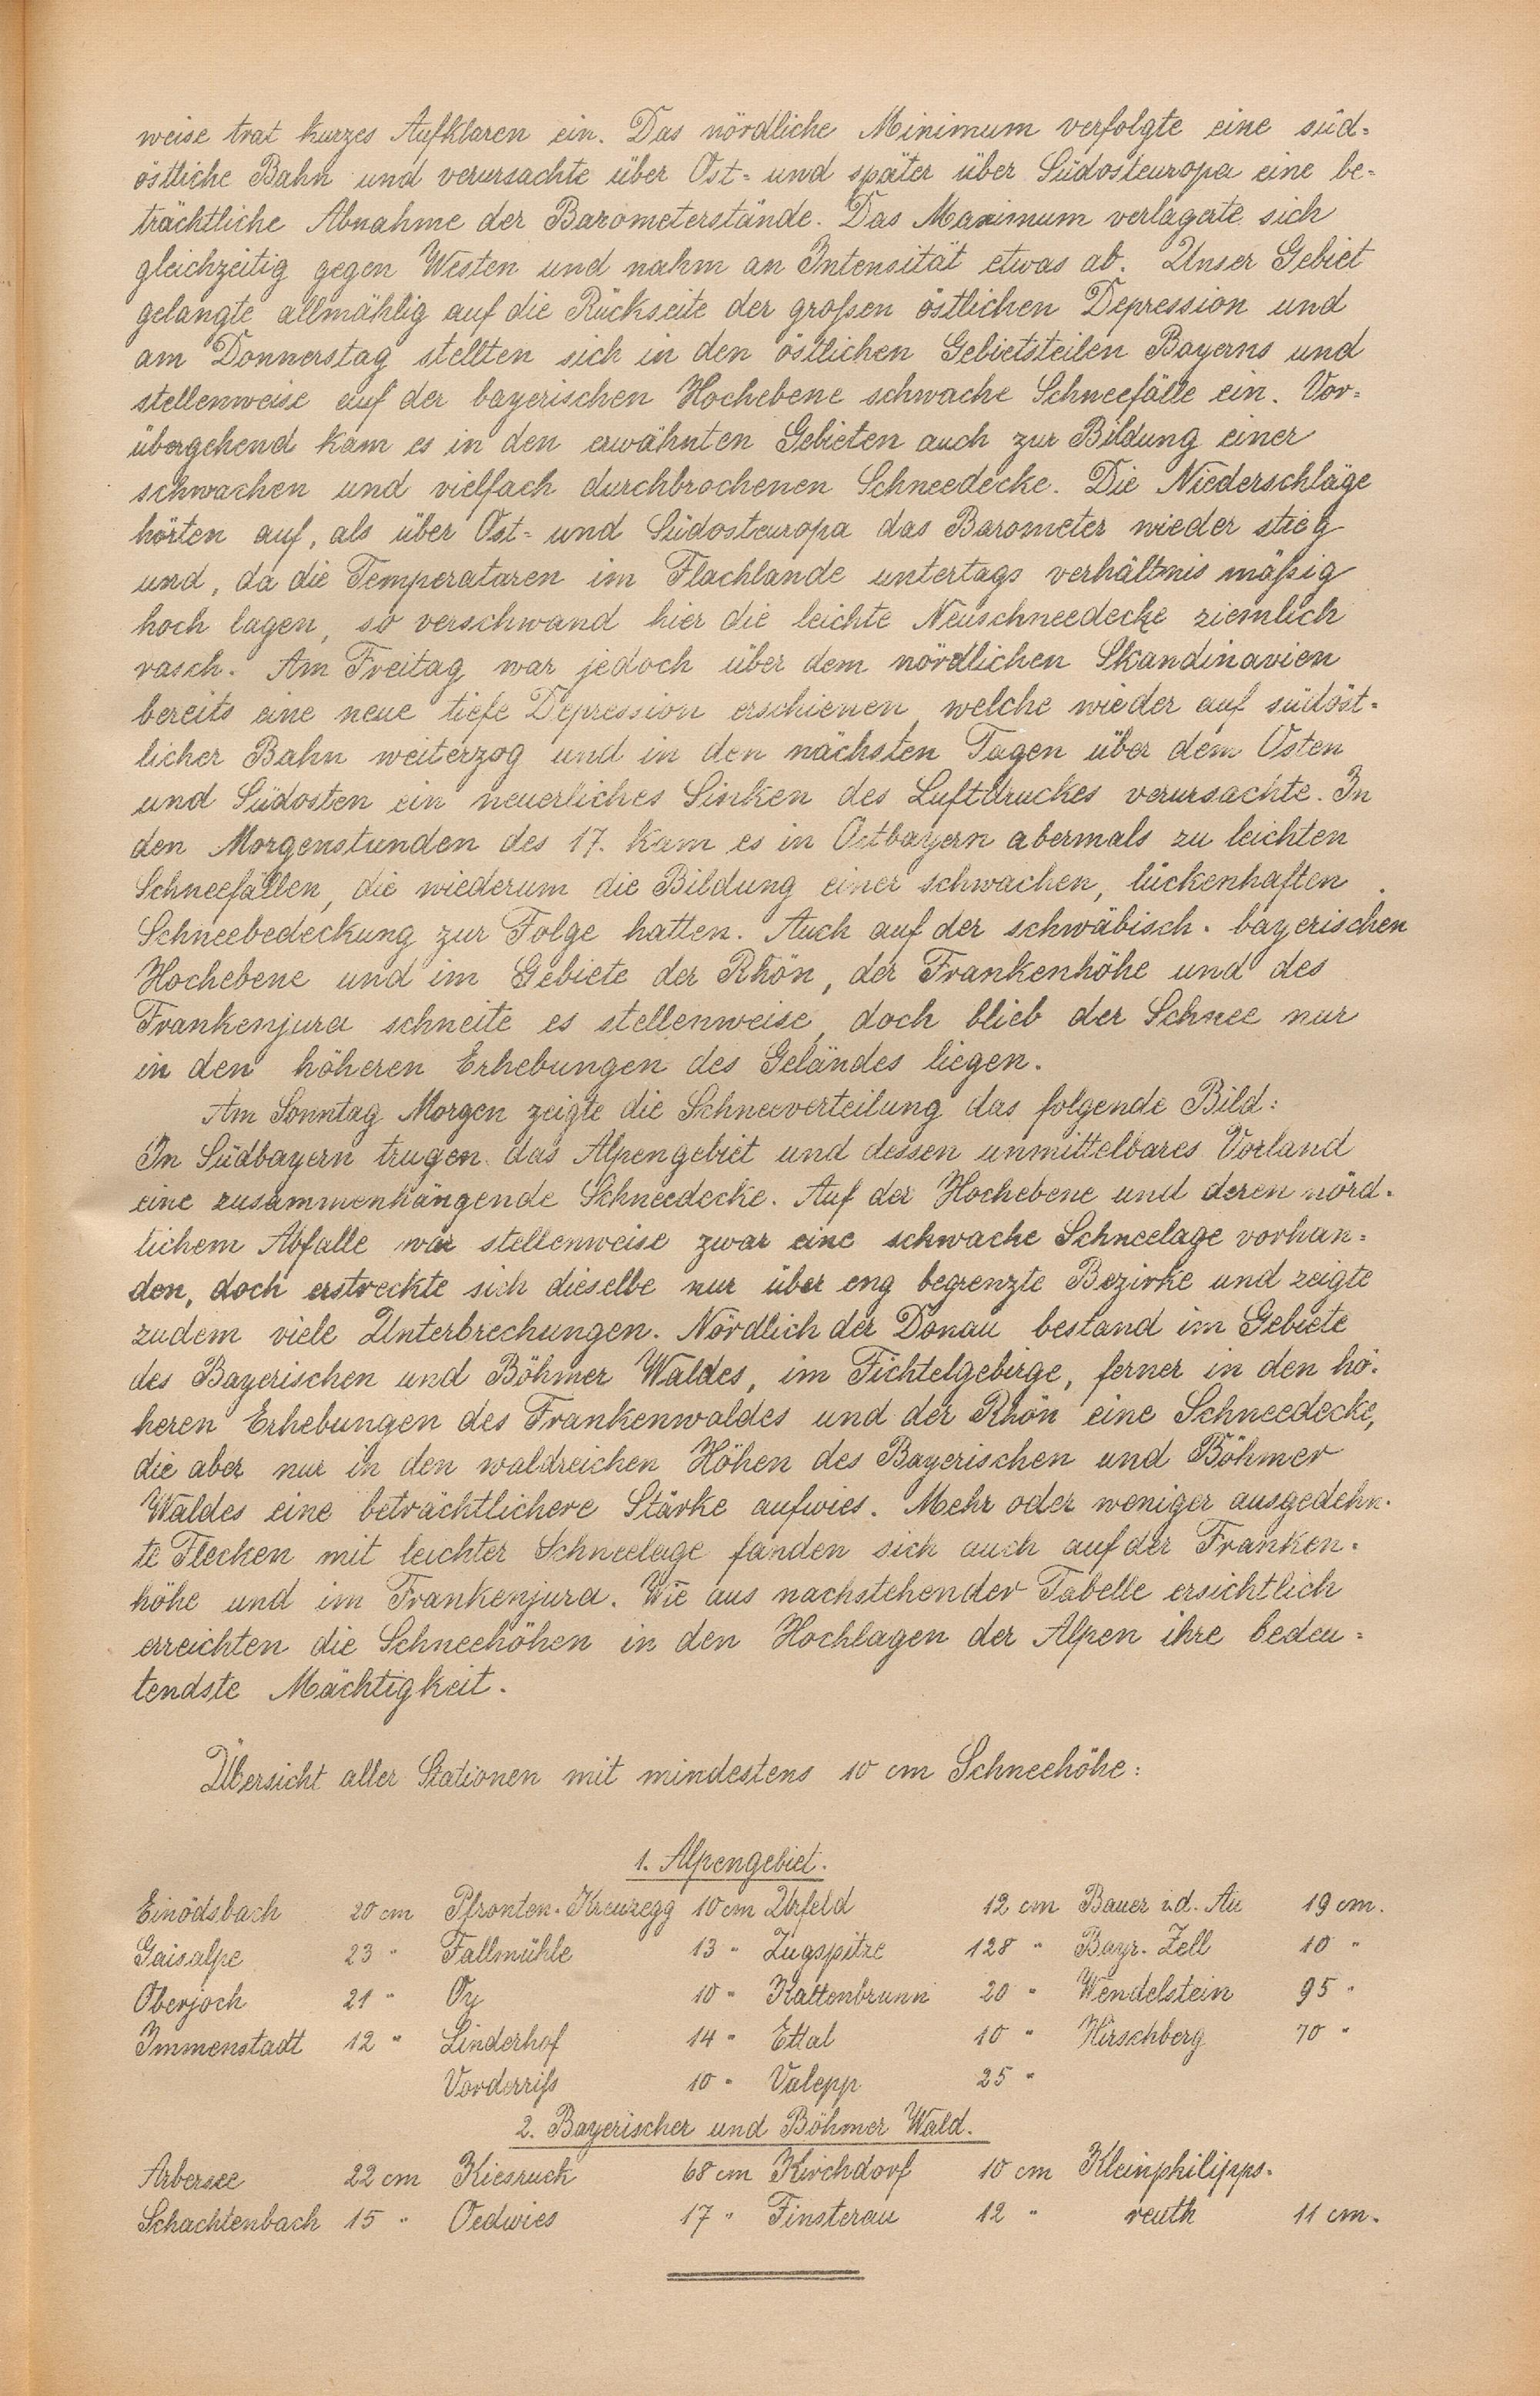 weise trat kurzes Aufklaren ein. Das nördliche Minimum verfolgte eine süd=
östliche Bahn und verursachte über Ost= und später über Südosteuropa eine be=
trächtliche Abnahme der Barometerstände. Das Maximum verlagerte sich
gleichzeitig gegen Westen und nahm an Intensität etwas ab. Unser Gebiet
gelangte allmählig auf die Rückseite der großen östlichen Depression und
am Donnerstag stellten sich in den östlichen Gebietsteilen Bayerns und
stellenweise auf der bayerischen Hochebene schwache Schneefälle ein. Vor=
übergehend kam es in den erwähnten Gebieten auch zur Bildung einer
schwachen und vielfach durchbrochenen Schneedecke. Die Niederschläge
hörten auf, als über Ost= und Südosteuropa das Barometer wieder stieg
und, da die Temperaturen im Flachlande untertags verhältnis mäßig
hoch lagen, so verschwand hier die leichte Neuschneedecke ziemlich
rasch. Am Freitag war jedoch über dem nördlichen Skandinavien
bereits eine neue tiefe Depression erschienen, welche wieder auf südöst=
licher Bahn weiterzog und in den nächsten Tagen über dem Osten
und Südosten ein neuerliches Sinken des Luftdruckes verursachte. In
den Morgenstunden des 17. kam es in Ostbayern abermals zu leichten
Schneefällen, die wiederum die Bildung einer schwachen, lückenhaften
Schneebedeckung zur Folge hatten. Auch auf der schwäbisch-bayerischen
Hochebene und im Gebiete der Rhön, der Frankenhöhe und des
Frankenjura schneite es stellenweise, doch blieb der Schnee nur
in den höheren Erhebungen des Geländes liegen.
Am Sonntag Morgen zeigte die Schneeverteilung das folgende Bild:
In Südbayern trugen das Alpengebiet und dessen unmittelbares Vorland
eine zusammenhängende Schneedecke. Auf der Hochebene und deren nörd-
lichem Abfalle war stellenweise zwar eine schwache Schneelage vorhan=
den, doch erstreckte sich dieselbe nur über eng begrenzte Bezirke und zeigte
zudem viele Unterbrechungen. Nördlich der Donau bestand im Gebiete
des Bayerischen und Böhmer Waldes, im Fichtelgebirge, ferner in den hö-
heren Erhebungen des Frankenwaldes und der Rhön eine Schneedecke,
die aber nur in den waldreichen Höhen des Bayerischen und Böhmer
Waldes eine beträchtlichere Stärke aufwies. Mehr oder weniger ausgedehn-
te Flecken mit leichter Schneelage fanden sich auch auf der Franken-
höhe und im Frankenjura. Wie aus nachstehender Tabelle ersichtlich
erreichten die Schneehöhen in den Hochlagen der Alpen ihre bedeu=
tendste Mächtigkeit.
Übersicht aller Stationen mit mindestens 10 cm Schneehöhe:
1. Alpengebiet.
Einödsbach 20 cm Pfronten-Kreuzegg 10 cm Urfeld 12 cm Bauer i.d. Au 19 cm.
Gaisalpe 23 " Fallmühle 13 " Zugspitze 128 " Bayr. Zell 10 "
Oberjoch 21 " Oy 10 " Kaltenbrunn 20 " Wendelstein 95 "
Immenstadt 12 " Linderhof 14 " Ettal 10 " Hirschberg 70 "
Vorderriß 10 " Valepp 25 "
2. Bayerischer und Böhmer Wald.
Arbersee 22 cm Kiesruck 68 cm Kirchdorf 10 cm Kleinphilipps-
Schachtenbach 15 " Oedwies 17 " Finsterau 12 " reuth 11 cm.